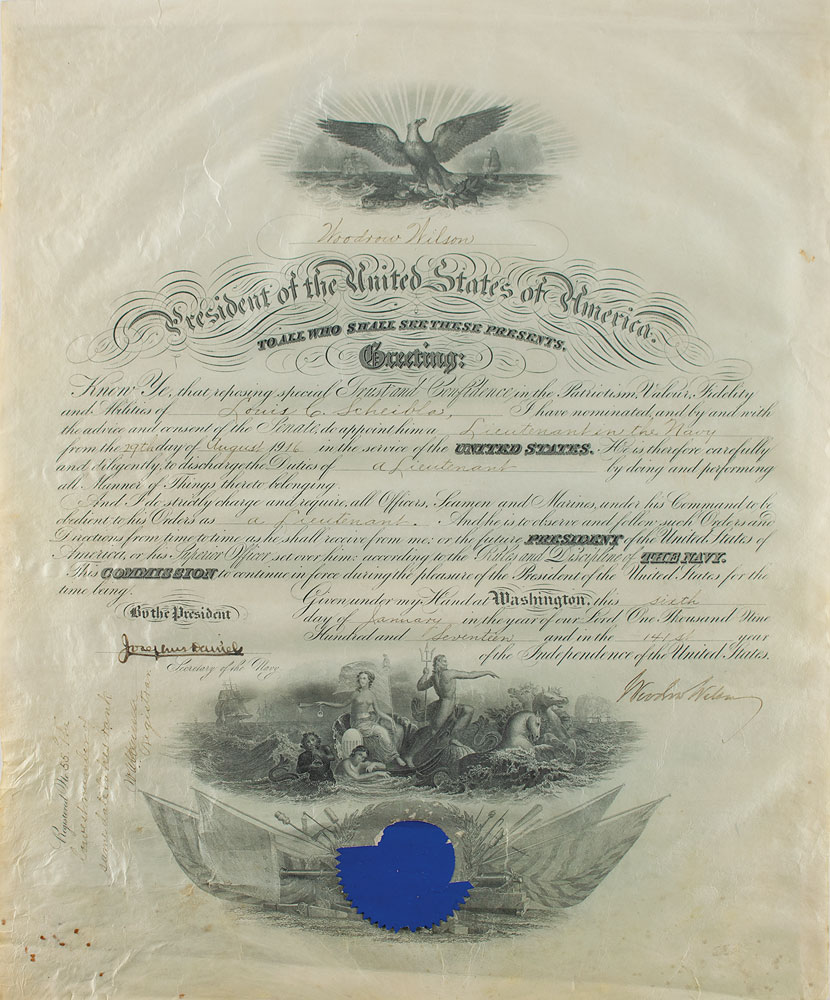 Woodrow Wilson
President of the United States of America.
TO ALL WHO SHALL SEE THESE PRESENTS,
Greeting:
Know Ye, that reposing special Trust and Confidence in the Patriotism, Valour, Fidelity
and Abilities of Louis C. Scheibla, I have nominated, and by and with
the advice and consent of the Senate, do appoint him a Lieutenant in the Navy
from the 29th day of August 1916 in the service of the UNITED STATES. He is therefore carefully
and diligently to discharge the Duties of a Lieutenant by doing and performing
all Manner of Things thereto belonging.
And I do strictly charge and require all Officers, Seamen and Marines, under his Command to be
obedient to his Orders as a Lieutenant. And he is to observe and follow such Orders and
Directions from time to time as he shall receive from me, or the future PRESIDENT of the United States of
America, or his Superior Officer set over him, according to the Rules and Discipline of THE NAVY.
This COMMISSION to continue in force during the pleasure of the President of the United States for the
time being.
Given under my Hand at Washington, this sixth
day of January in the year of our Lord One Thousand Nine
Hundred and Seventeen and in the 141st year
of the Independence of the United States.
By the President
Josephus Daniels
Secretary of the Navy
Woodrow Wilson
Registered No.
Lowest number of
same date takes rank
Registrar